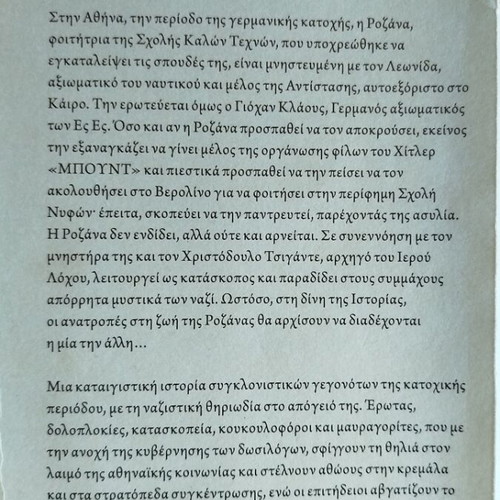 Στην Αθήνα, την περίοδο της γερμανικής κατοχής, η Ροζάνα,
φοιτήτρια της Σχολής Καλών Τεχνών, που υποχρεώθηκε να
εγκαταλείψει τις σπουδές της, είναι μνηστευμένη με τον Λεωνίδα,
αξιωματικό του ναυτικού και μέλος της Αντίστασης, αυτοεξόριστο στο
Κάιρο. Την ερωτεύεται όμως ο Γιόχαν Κλάους, Γερμανός αξιωματικός
των Ες Ες. Όσο και αν η Ροζάνα προσπαθεί να τον αποκρούσει, εκείνος
την εξαναγκάζει να γίνει μέλος της οργάνωσης φίλων του Χίτλερ
«ΜΠΟΥΝΤ» και πιεστικά προσπαθεί να την πείσει να τον
ακολουθήσει στο Βερολίνο για να φοιτήσει στην περίφημη Σχολή
Νυφών· έπειτα, σκοπεύει να την παντρευτεί, παρέχοντάς της ασυλία.
Η Ροζάνα δεν ενδίδει, αλλά ούτε και αρνείται. Σε συνεννόηση με τον
μνηστήρα της και τον Χριστόδουλο Τσιγάντε, αρχηγό του Ιερού
Λόχου, λειτουργεί ως κατάσκοπος και παραδίδει στους συμμάχους
απόρρητα μυστικά των ναζί. Ωστόσο, στη δίνη της Ιστορίας,
οι ανατροπές στη ζωή της Ροζάνας θα αρχίσουν να διαδέχονται
η μία την άλλη…
Μια καταιγιστική ιστορία συγκλονιστικών γεγονότων της κατοχικής
περιόδου, με τη ναζιστική θηριωδία στο απόγειό της. Έρωτας,
δολοπλοκίες, κατασκοπεία, κουκουλοφόροι και μαυραγορίτες, που με
την ανοχή της κυβέρνησης των δωσιλόγων, σφίγγουν τη θηλιά στον
λαιμό της αθηναϊκής κοινωνίας και στέλνουν αθώους στην κρεμάλα
και στα στρατόπεδα συγκέντρωσης, ενώ οι επιτήδειοι αβγατίζουν το